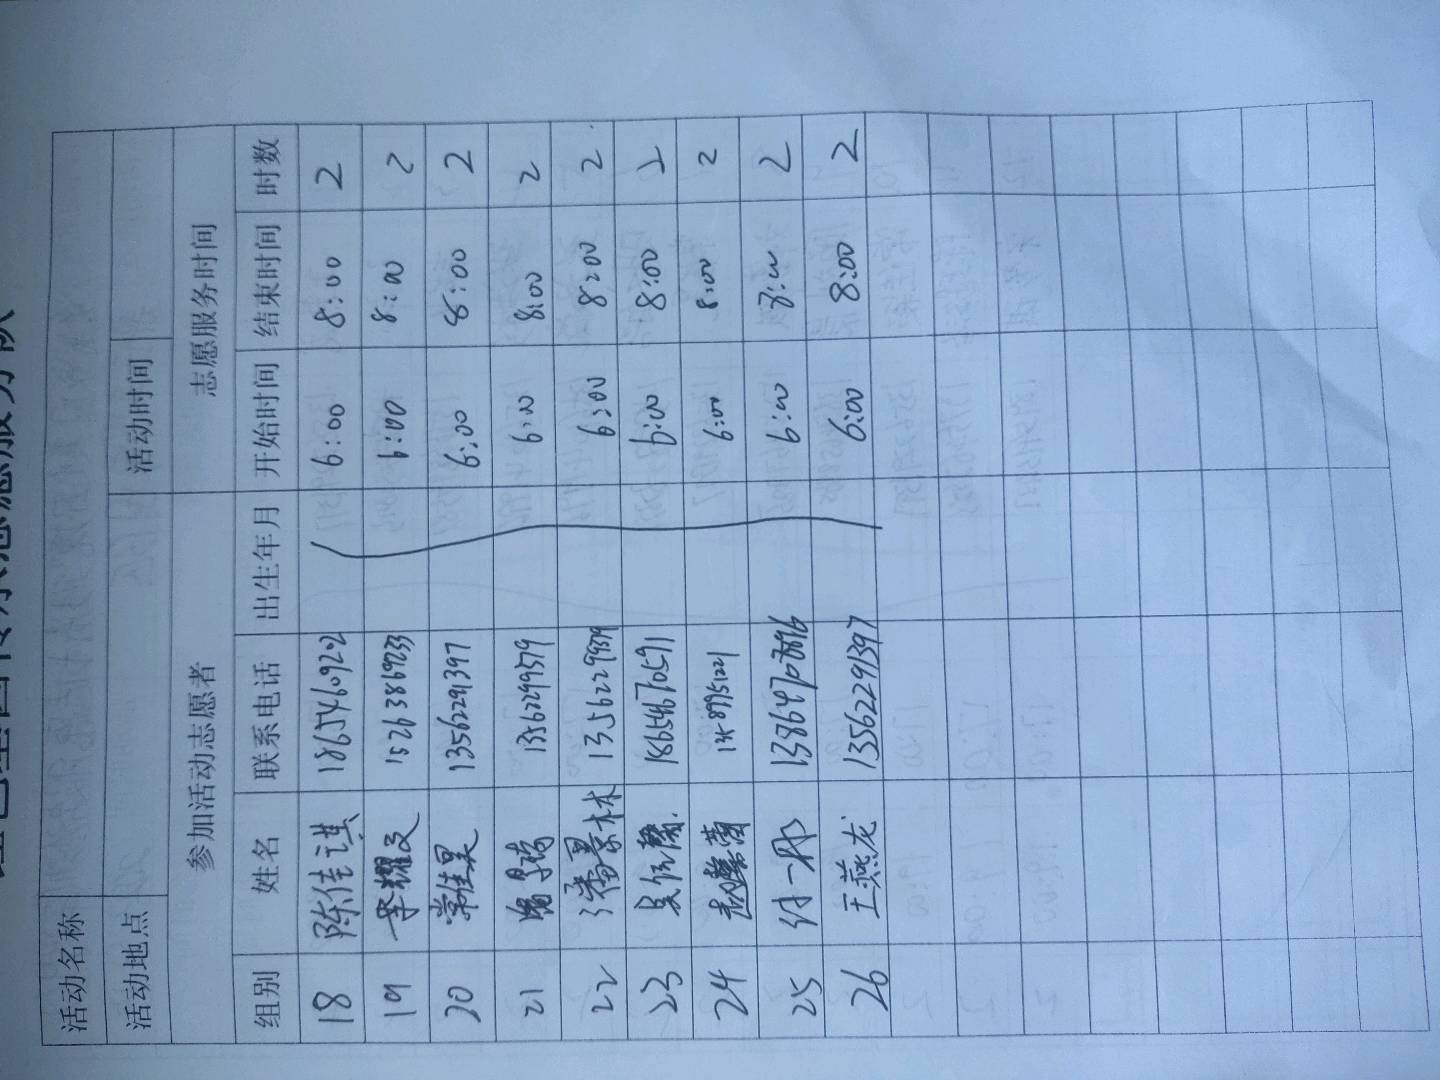 活动名称
活动地点 活动时间
参加活动志愿者 志愿服务时间
组别 姓名 联系电话 出生年月 开始时间 结束时间 时数
18 陈佳淇 18654609202 6:00 8:00 2
19 李耀文 15263869233 6:00 8:00 2
20 常佳昊 13562291397 6:00 8:00 2
21 13562299579 6:00 8:00 2
22 潘景林 13562299579 6:00 8:00 2
23 18654670591 6:00 8:00 2
24 赵馨蕾 6:00 8:00 2
25 付一丹 6:00 8:00 2
26 王燕龙 13562291397 6:00 8:00 2